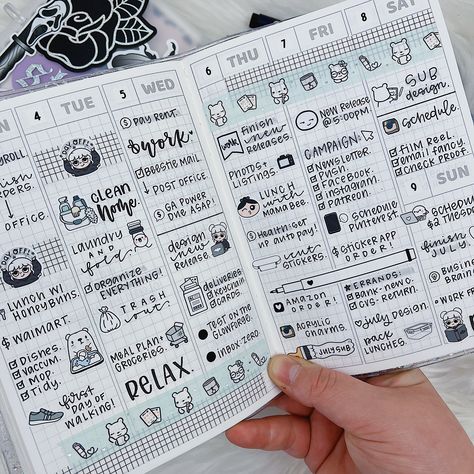 4
TUE
DAY OFF!
CLEAN
home.
LAUNDRY
AND
fold
ORGANIZE
EVERYTHING!
TRASH
OUT
MEAL PLAN +
GROCERIES.
RELAX.
ROLL
OFFICE.
DAY OFF!
LUNCH W/
HONEY BUNS.
$ WALMART.
DISHES
VACCUM.
MOP
TIDY.
first
DAY OF
WALKING!
5
WED
$ PAY RENT.
work
BEESTIE MAIL.
POST OFFICE.
$ GA POWER
DUE ASAP!
DESIGN
NEW
RELEASE.
DELIVERIES
KEYCHAIN
CARDS.
TEST ON THE
GLOWFORGE.
INBOX: ZERO.
6
THU
FINISH
NEW
RELEASES.
WORK
PHOTOS +
LISTINGS.
LUNCH
WITH
MAMA BEE.
$ HEALTH: GET
UP AUTO PAY!
CUT
STICKERS.
AMAZON
ORDER!
ACRYLIC
CHARMS.
7
FRI
NEW RELEASE
@ 5:00PM
CAMPAIGN:
NEWSLETTER
PUSH.
FACEBOOK.
INSTAGRAM.
PATREON.
SCHEDULE
PINTEREST
$ STICKER APP
ORDER!
ERRANDS:
BANK - NEW C.
CVS - RETURN.
JULY DESIGN.
JULY SUB
PACK
LUNCHES.
8
SAT
SUB
DESIGN.
FILM REEL.
EMAIL FANCY
CHECK PROOF.
9
SUN
SCHEDULE
$2 THINGS
FINISH
JULY
BUSINESS
BRAIN